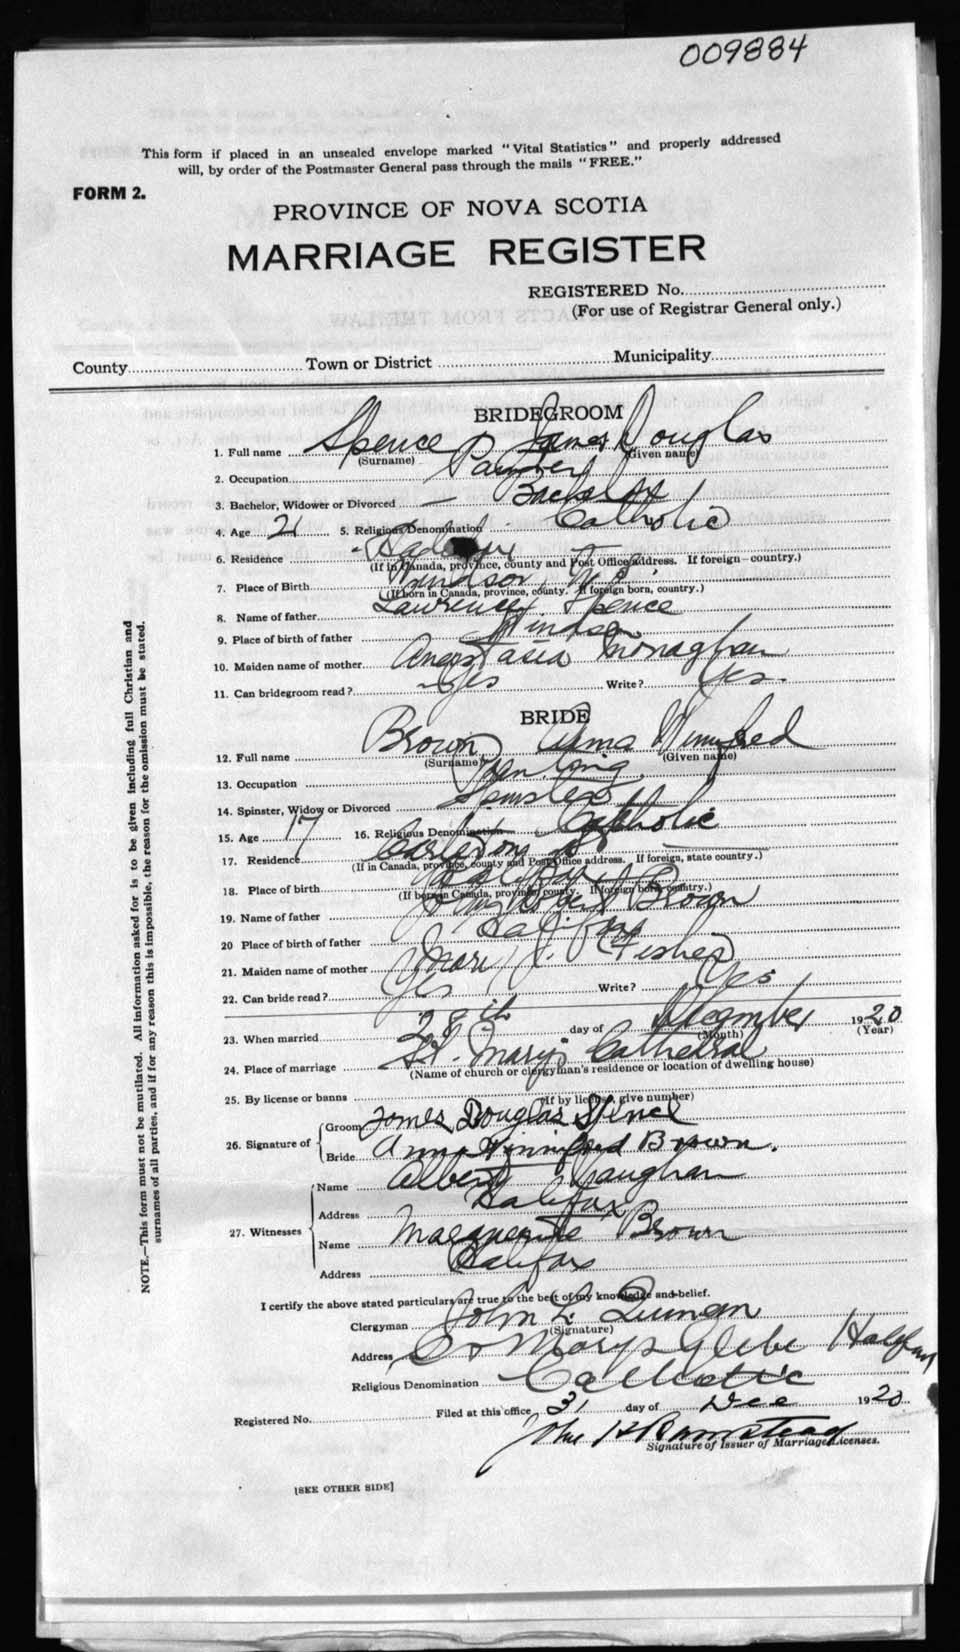 009884
This form if placed in an unsealed envelope marked "Vital Statistics" and properly addressed
will, by order of the Postmaster General pass through the mails "FREE."
FORM 2.
PROVINCE OF NOVA SCOTIA
MARRIAGE REGISTER
REGISTERED No.
(For use of Registrar General only.)
County Town or District Municipality
BRIDEGROOM
1. Full name Spence James Douglas
(Surname) (Given name)
2. Occupation
3. Bachelor, Widower or Divorced Bachelor
4. Age 21 5. Religious Denomination Catholic
6. Residence
(If in Canada, province, county and Post Office address. If foreign—country.)
7. Place of Birth Windsor, N.S.
(If born in Canada, province, county. If foreign born, country.)
8. Name of father Lawrence Spence
9. Place of birth of father Windsor
10. Maiden name of mother Anastasia Monaghan
11. Can bridegroom read? Yes Write? Yes.
BRIDE
12. Full name Brown Anna Winnifred
(Surname) (Given name)
13. Occupation
14. Spinster, Widow or Divorced Spinster
15. Age 17 16. Religious Denomination Catholic
17. Residence Carleton St
(If in Canada, province, county and Post Office address. If foreign, state country.)
18. Place of birth Halifax
(If born in Canada, province, county. If foreign born, country.)
19. Name of father John Robert Brown
20 Place of birth of father Halifax
21. Maiden name of mother Mary J. Fisher
22. Can bride read? Yes Write? Yes
23. When married 28th day of December 1920
(Month) (Year)
24. Place of marriage St. Mary's Cathedral
(Name of church or clergyman's residence or location of dwelling house)
25. By license or banns
(If by license, give number)
26. Signature of Groom James Douglas Spence
Bride Anna Winnifred Brown.
27. Witnesses Name Albert Vaughan
Address Halifax
Name Marguerite Brown
Address Halifax
I certify the above stated particulars are true to the best of my knowledge and belief.
Clergyman John L. Quinan
(Signature)
Address St Marys Glebe Halifax
Religious Denomination Catholic
Registered No. Filed at this office 31 day of Dec 1920
John H Barnstead
Signature of Issuer of Marriage Licenses.
[SEE OTHER SIDE]
NOTE.—This form must not be mutilated. All information asked for is to be given including full Christian and
surnames of all parties, and if for any reason this is impossible, the reason for the omission must be stated.